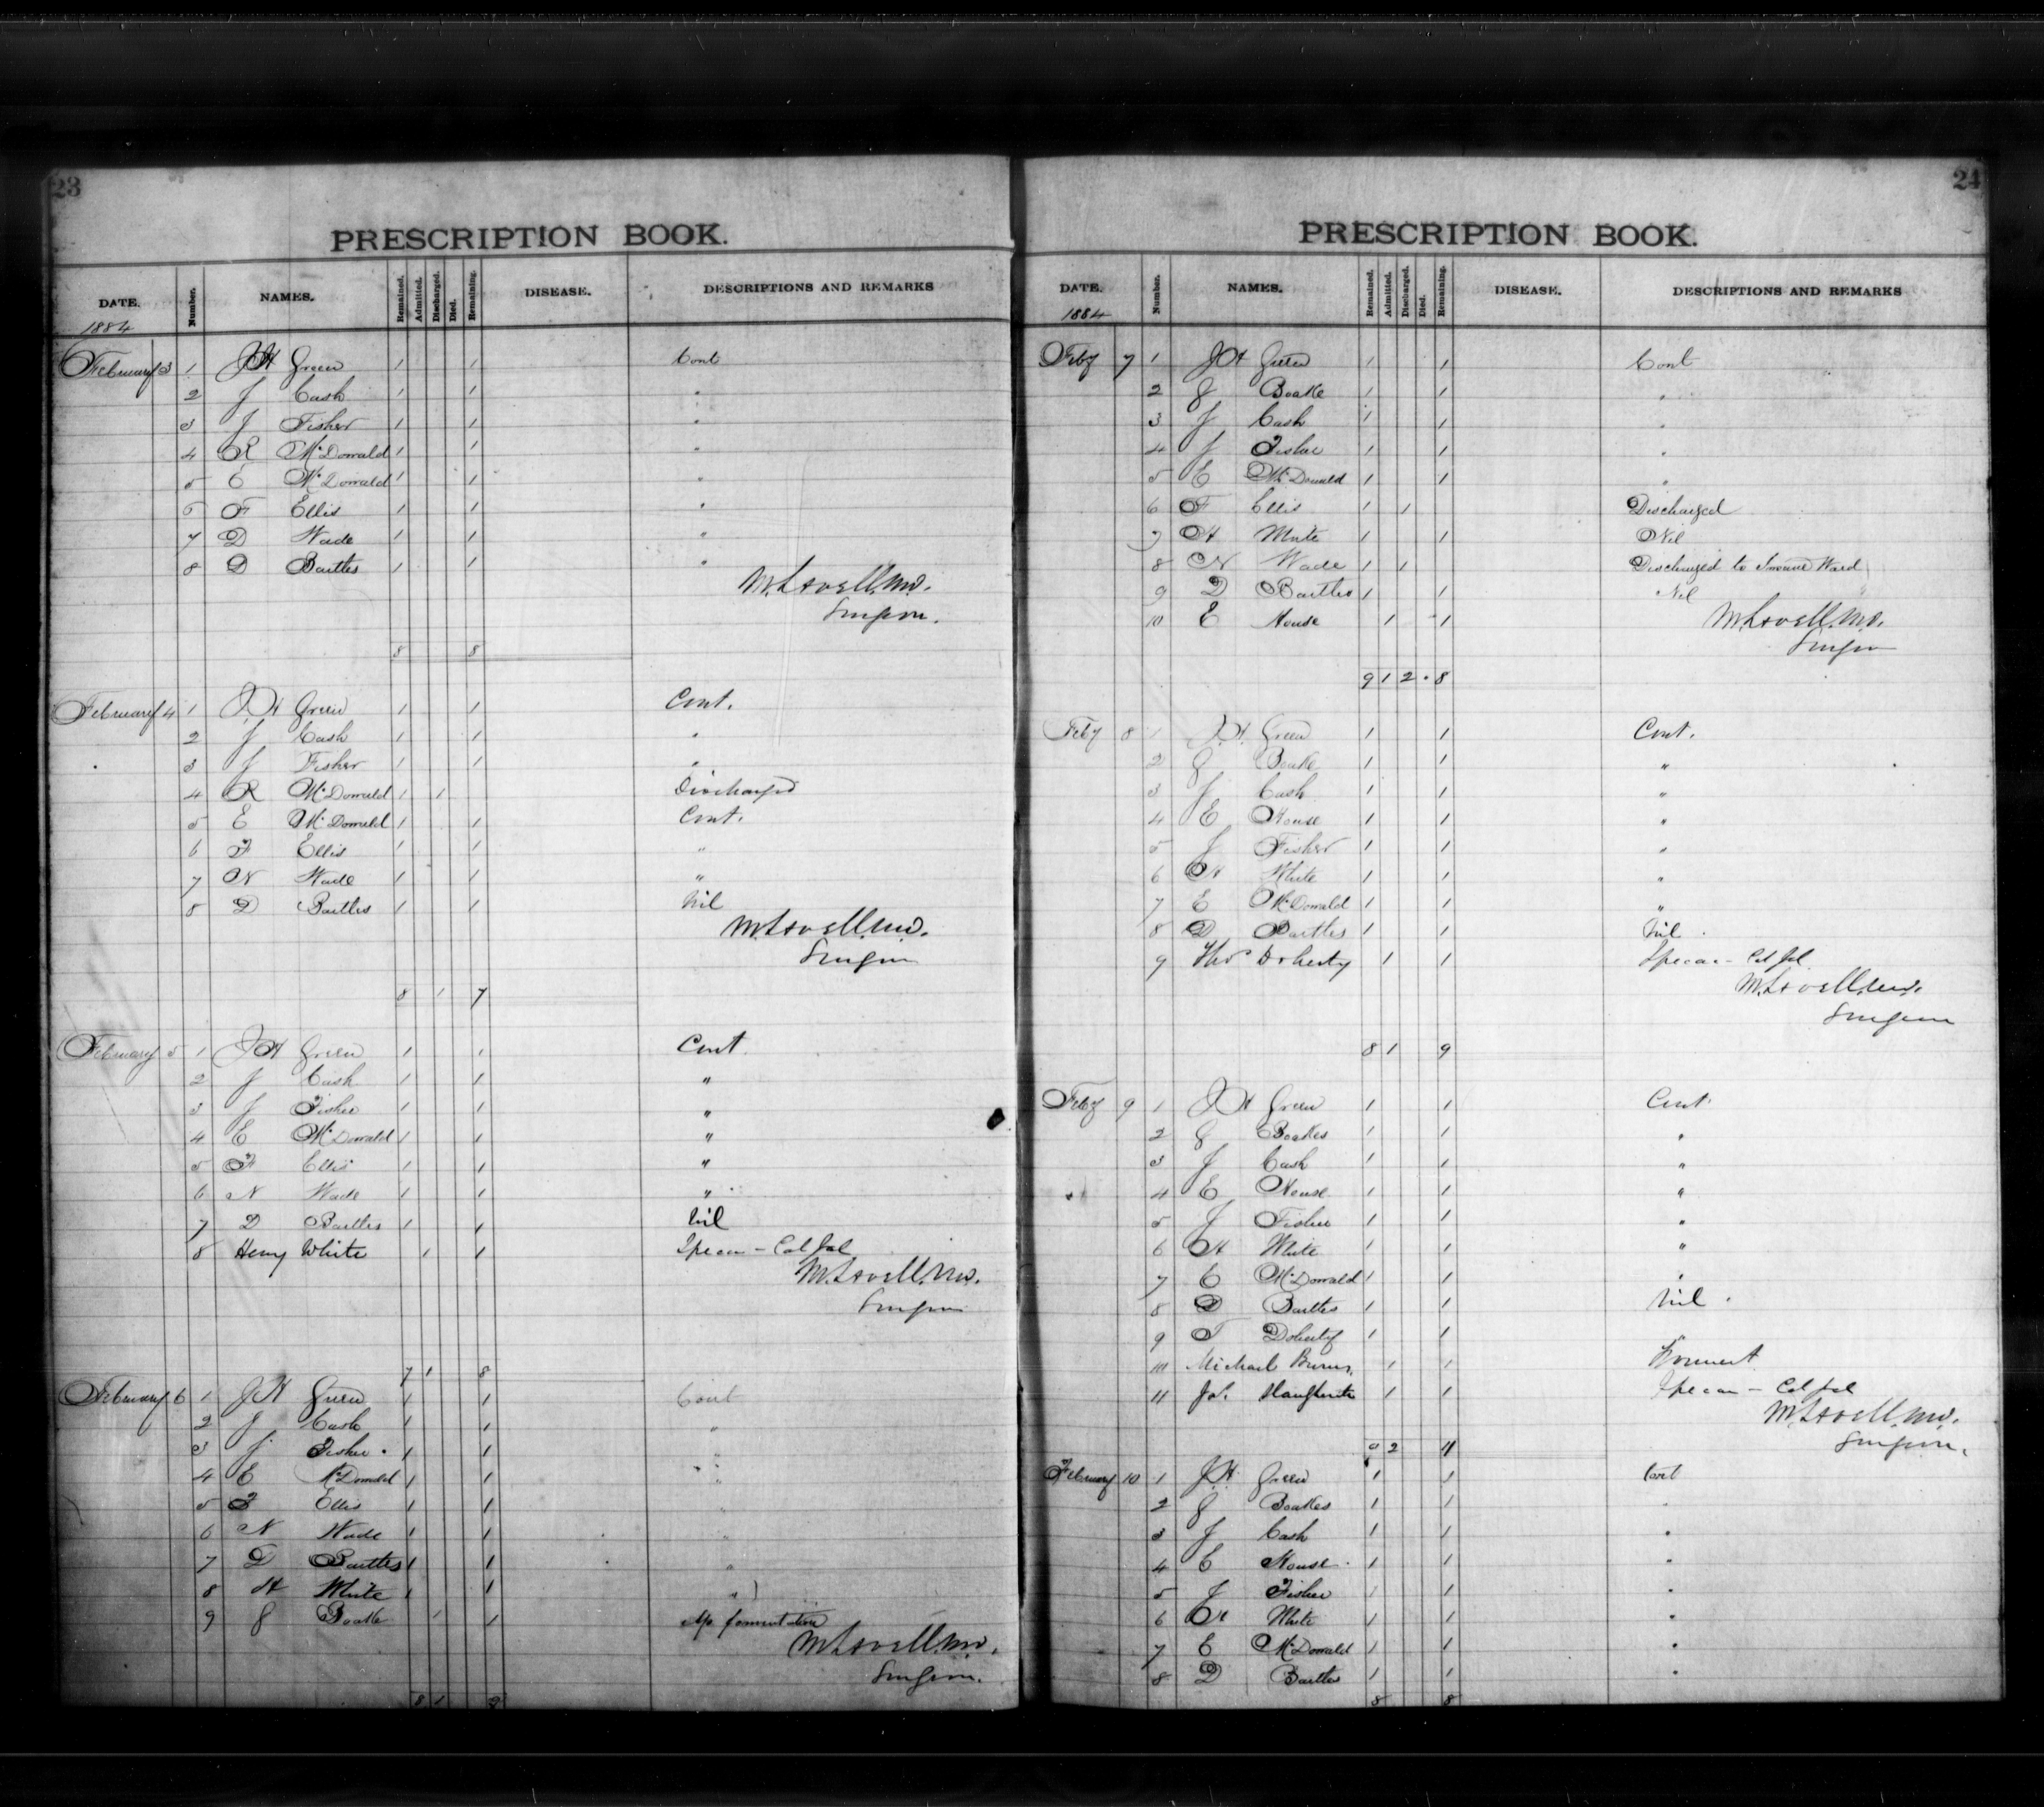 23
PRESCRIPTION BOOK.
DATE. Number. NAMES. Remained. Admitted. Discharged. Died. Remaining. DISEASE. DESCRIPTIONS AND REMARKS
1884
February 3 1 JH Green 1 1 Cont
2 J Cash 1 1 "
3 J Fisher 1 1 "
4 R McDonald 1 1 "
5 E McDonald 1 1 "
6 F Ellis 1 1 "
7 D Wade 1 1 "
8 D Bartles 1 1 "
M. Lavell. MD.
Surgeon.
8 8
February 4 1 JH Green 1 1 Cont.
2 J Cash 1 1 "
3 J Fisher 1 1 "
4 R McDonald 1 1 Discharged
5 E McDonald 1 1 Cont.
6 F Ellis 1 1 "
7 N Wade 1 1 "
8 D Bartles 1 1 Nil
M. Lavell. MD.
Surgeon
8 1 7
February 5 1 JH Green 1 1 Cont
2 J Cash 1 1 "
3 J Fisher 1 1 "
4 E McDonald 1 1 "
5 F Ellis 1 1 "
6 N Wade 1 1 "
7 D Bartles 1 1 Nil
8 Henry White 1 1 Ipecac - Cal Jal
M. Lavell. MD.
Surgeon
7 1 8
February 6 1 JH Green 1 1 Cont
2 J Cash 1 1 "
3 J Fisher 1 1 "
4 E McDonald 1 1 "
5 F Ellis 1 1 "
6 N Wade 1 1 "
7 D Bartles 1 1 "
8 H White 1 1 "
9 J Boake 1 1 fomentation
M. Lavell. MD.
Surgeon.
8 1 9
24
PRESCRIPTION BOOK.
DATE. Number. NAMES. Remained. Admitted. Discharged. Died. Remaining. DISEASE. DESCRIPTIONS AND REMARKS
1884
Feby 7 1 JH Green 1 1 Cont
2 J Boake 1 1 "
3 J Cash 1 1 "
4 J Fisher 1 1 "
5 E McDonald 1 1 "
6 F Ellis 1 1 Discharged
7 H White 1 1 Nil
8 N Wade 1 1 Discharged to Insane Ward
9 D Bartles 1 1 Nil
10 E House 1 1
M. Lavell. MD.
Surgeon
9 1 2 . 8
Feby 8 1 J.H. Green 1 1 Cont.
2 J Boake 1 1 "
3 J Cash 1 1 "
4 E House 1 1 "
5 J Fisher 1 1 "
6 H White 1 1 "
7 E McDonald 1 1 "
8 D Bartles 1 1 Nil
9 Thos Doherty 1 1 Ipecac - Cal Jal
M. Lavell. MD.
Surgeon
8 1 9
Feby 9 1 JH Green 1 1 Cont.
2 J Boakes 1 1 "
3 J Cash 1 1 "
4 E House 1 1 "
5 J Fisher 1 1 "
6 H White 1 1 "
7 E McDonald 1 1 "
8 D Bartles 1 1 Nil
9 T Doherty 1 1 "
10 Michael Burns 1 1
11 Jas. 1 1 Ipecac - Cal Jal
M. Lavell. MD.
Surgeon.
9 2 11
February 10 1 J.H. Green 1 1 Cont
2 J Boakes 1 1 "
3 J Cash 1 1 "
4 E House 1 1 "
5 J Fisher 1 1 "
6 H White 1 1 "
7 E McDonald 1 1 "
8 D Bartles 1 1 "
8 8